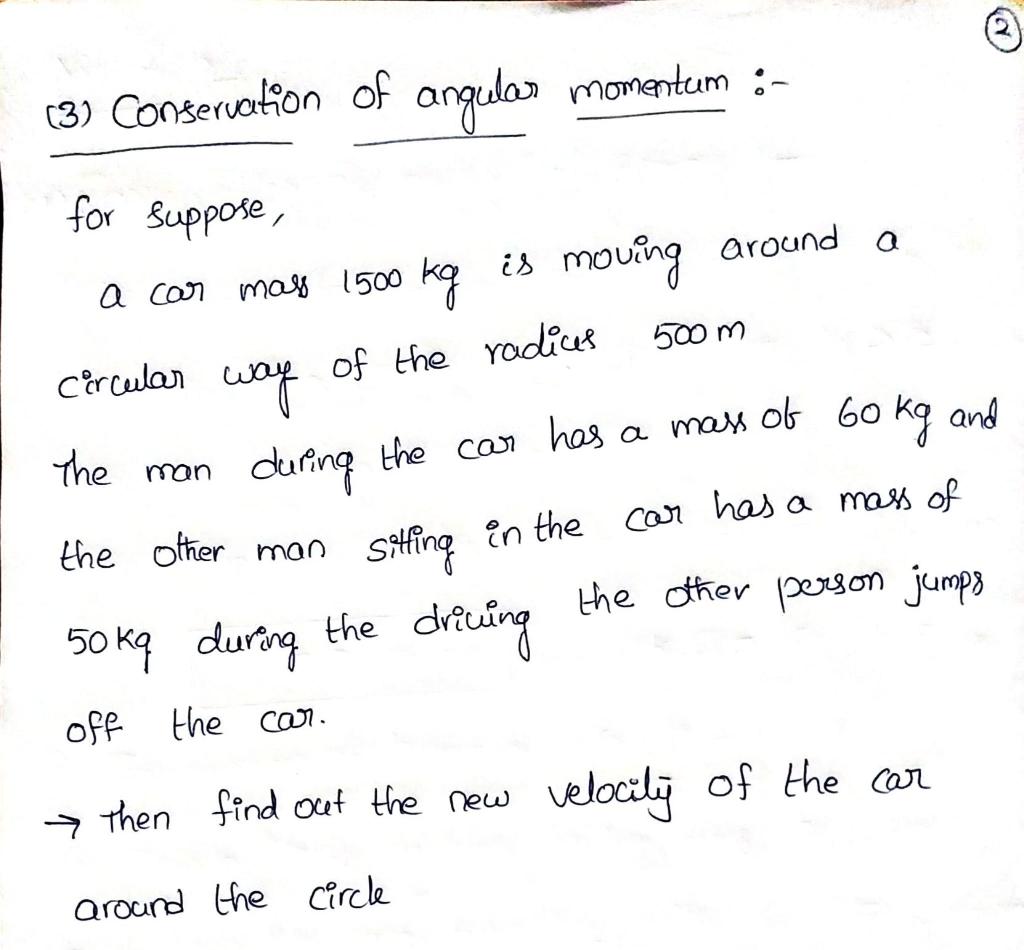 2
(3) Conservation of angular momentum :-
for suppose,
a car mass 1500 kg is moving around a
circular way of the radius 500 m
The man during the car has a mass of 60 kg and
the other man sitting in the car has a mass of
50 kg during the driving the other person jumps
off the car.
→ then find out the new velocity of the car
around the circle